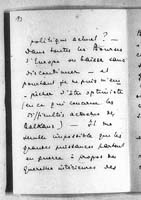 politique actuel ? —
Dans toutes les Bourses
d'Europe on baisse sans
discontinuer — et
pourtant je ne puis m'em-
pêcher d'être optimiste
(en ce qui concerne les
affaires actuelles des
Balkans) — il me
semble impossible que les
grandes puissances partent
en guerre à propos des
querelles intérieures des